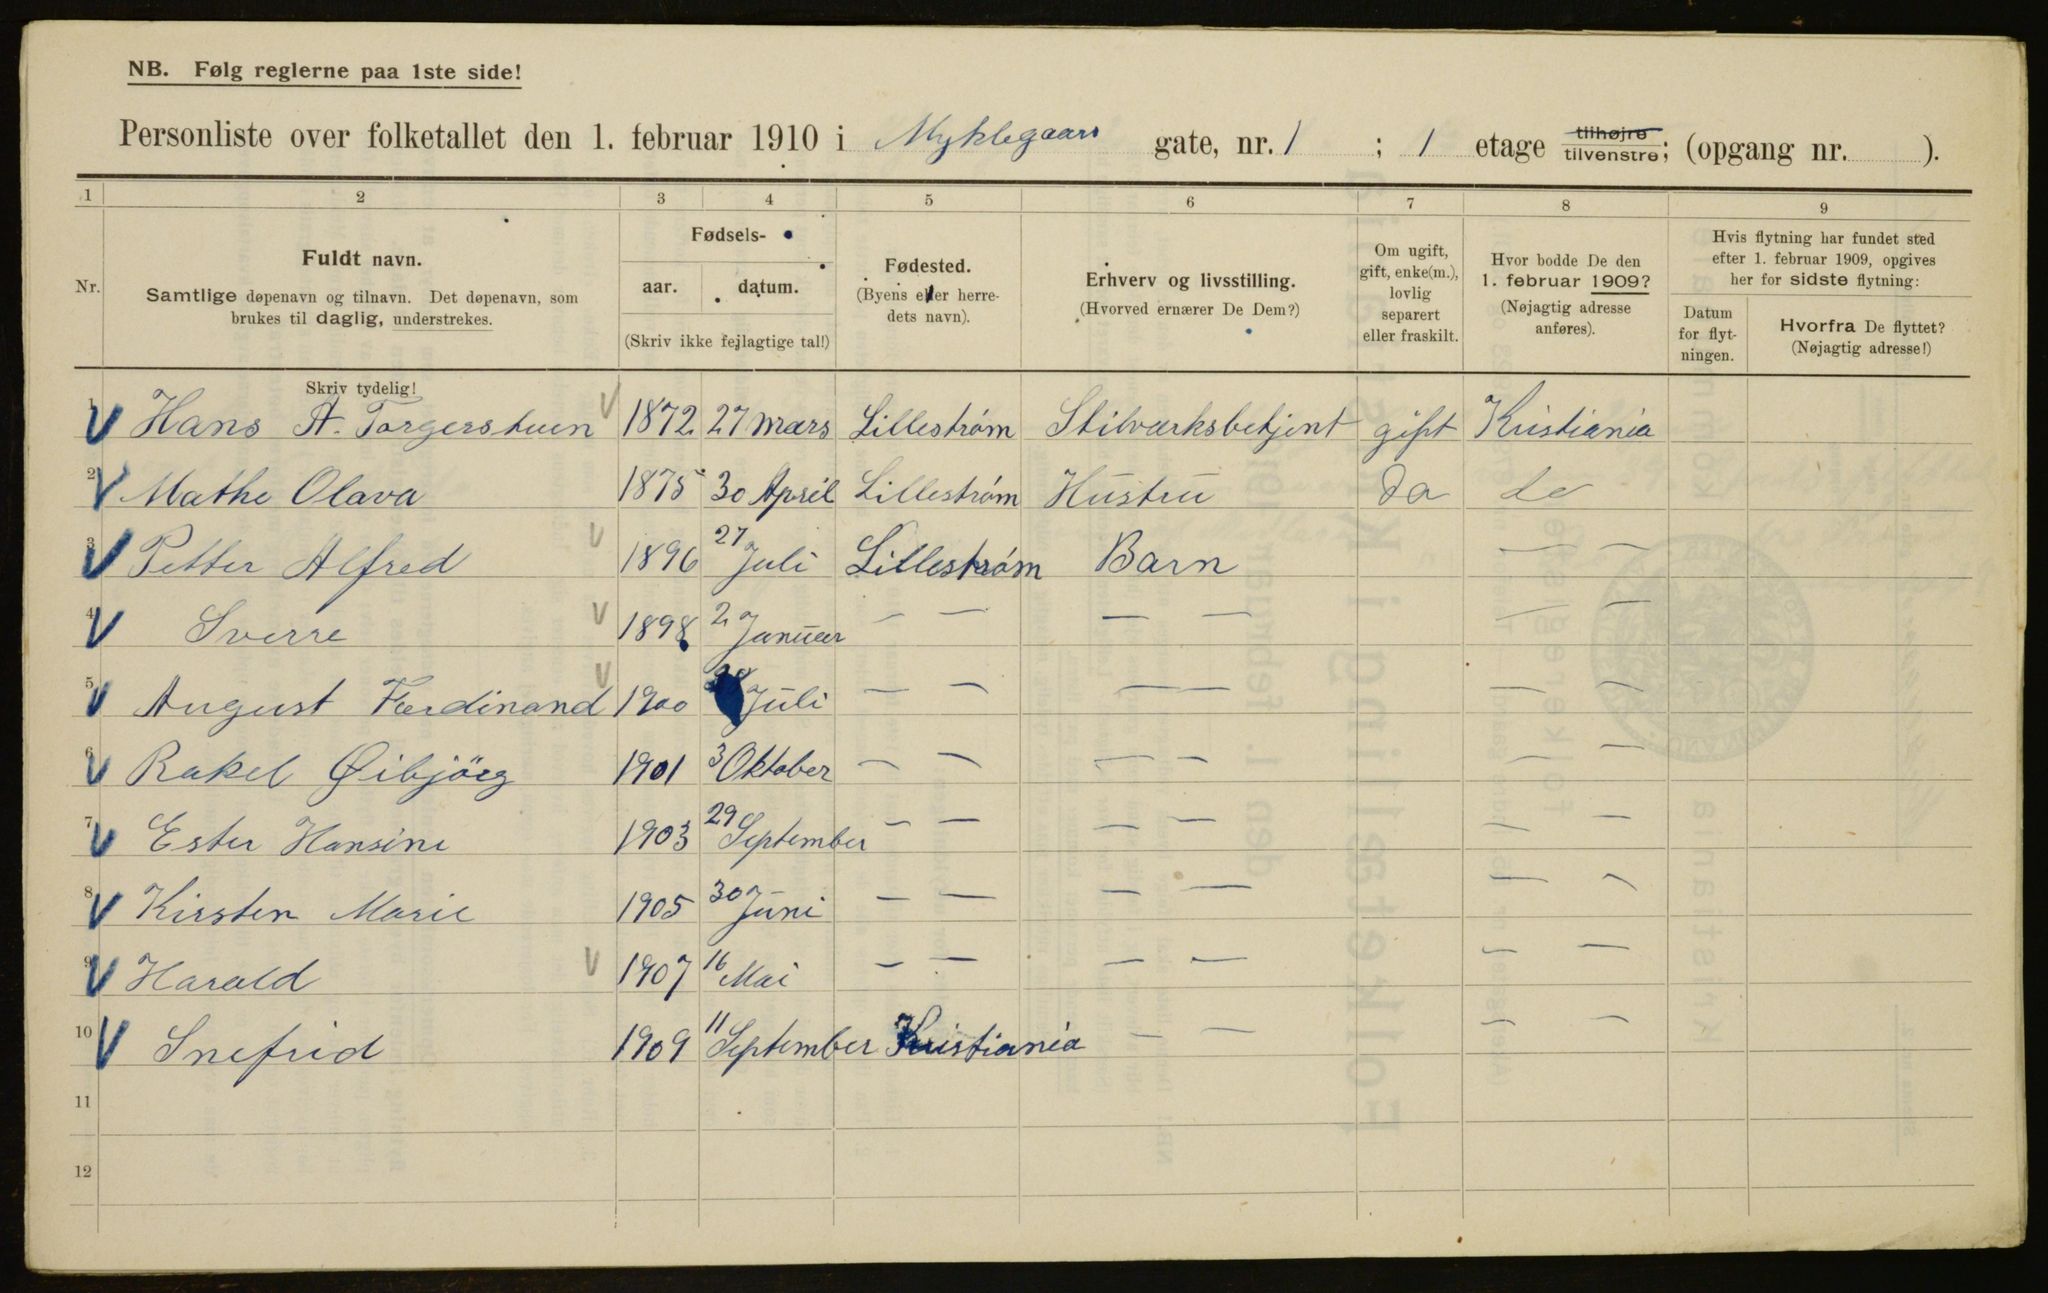 NB. Følg reglerne paa 1ste side!
Personliste over folketallet den 1. februar 1910 i Myklegaars gate, nr. 1 ; 1 etage tilhøjre tilvenstre; (opgang nr. ).
1 2 3 4 5 6 7 8 9
Nr.
Fuldt navn.
Samtlige døpenavn og tilnavn. Det døpenavn, som
brukes til daglig, understrekes.
Fødsels-
aar. datum.
(Skriv ikke fejlagtige tal!)
Fødested.
(Byens eller herre-
dets navn).
Erhverv og livsstilling.
(Hvorved ernærer De Dem?)
Om ugift,
gift, enke(m.),
lovlig
separert
eller fraskilt.
Hvor bodde De den
1. februar 1909?
(Nøjagtig adresse
anføres).
Hvis flytning har fundet sted
efter 1. februar 1909, opgives
her for sidste flytning:
Datum
for flyt-
ningen.
Hvorfra De flyttet?
(Nøjagtig adresse!)
Skriv tydelig!
1 V Hans A. Torgerstuen V 1872 27 Mars Lillestrøm Stilværksbetjent gift Kristiania
2 V Mathe Olava 1875 30 April Lillestrøm Hustru Do do
3 V Petter Alfred V 1896 27 Juli Lillestrøm Barn — —
4 V Sverre V 1898 2 Januar — — — — — —
5 V August Ferdinand V 1900 Juli — — — — — —
6 V Rakel Øibjörg 1901 3 Oktober — — — — — —
7 V Ester Hansine 1903 29 September — — — — — —
8 V Kirsten Marie 1905 30 Juni — — — — — —
9 V Harald V 1907 16 Mai — — — — — —
10 V Snefrid 1909 11 September Kristiania — — — —
11
12